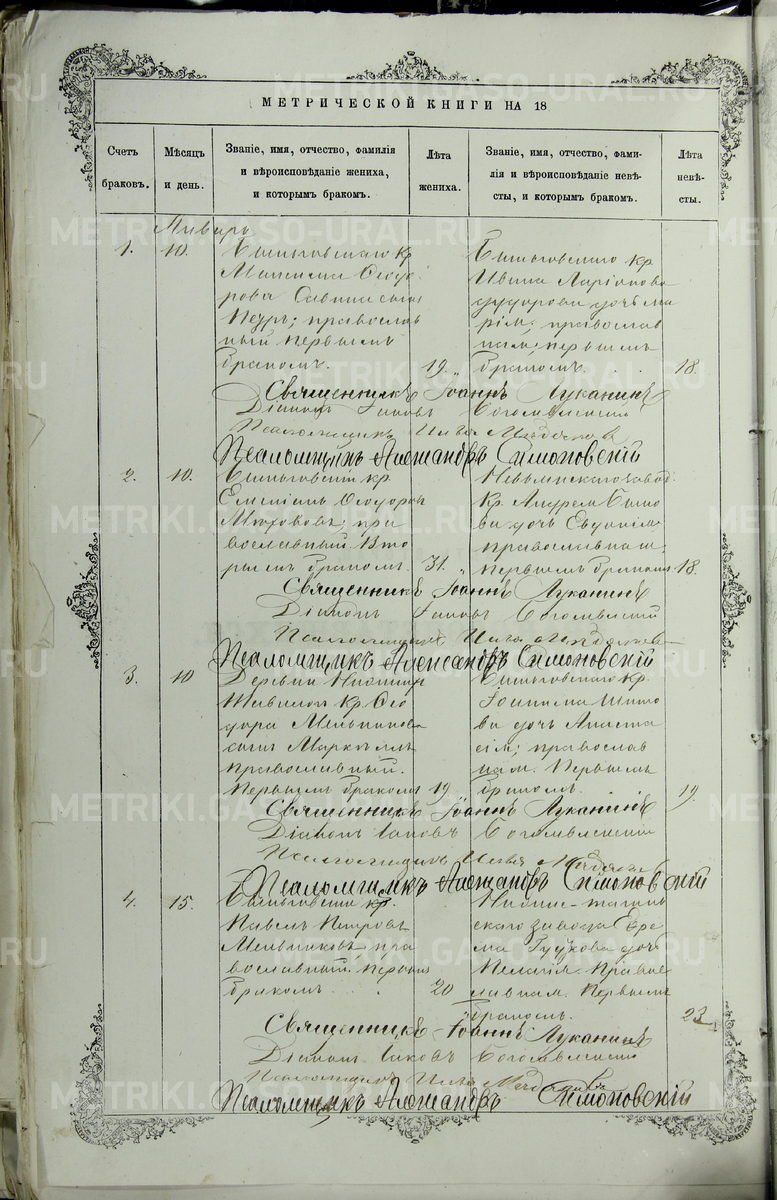 МЕТРИЧЕСКОЙ КНИГИ НА 18
Счетъ браковъ.
Мѣсяцъ и день.
Званіе, имя, отчество, фамилія и вѣроисповѣданіе жениха, и которымъ бракомъ.
Лѣта жениха.
Званіе, имя, отчество, фами-
лія и вѣроисповѣданіе невѣ-
сты, и которымъ бракомъ.
Лѣта невѣ-
сты.
Январь
1. 10.
Быньговскаго кр
Максима Ѳеодо
рова Саввина сынъ
Петръ; православ
ный первымъ
бракомъ. 19
Быньговскаго кр.
Ивана Ларіонова
дочь Ма
рія; православ
ная, первымъ
бракомъ. 18.
Священникъ Іоаннъ Луканинъ
Діаконъ Іаковъ Богоявленскій
Псаломщикъ Илья
Псаломщикъ Александръ Симоновскій
2. 10.
Быньговскій кр.
Емиліанъ Ѳеодоровъ
пра
вославный Вто
рымъ бракомъ. 31.
Невьянскаго завод.
Кр. Андрея
ва дочь Евдокія
православная;
первымъ бракомъ 18.
Священникъ Іоаннъ Луканинъ
Діаконъ Іаковъ Богоявленскій
Псаломщикъ Илья
Псаломщикъ Александръ Симоновскій
3. 10
Деревни
кр. Ѳео
дора Мельникова
сынъ Маркеллъ
православный.
Первымъ бракомъ 19
Быньговскаго кр.
Іоакима Шито
ва дочь Анаста
сія; православ
ная. Первымъ
бракомъ. 19.
Священникъ Іоаннъ Луканинъ
Діаконъ Іаковъ Богоявленскій
Псаломщикъ Илья
Псаломщикъ Александръ Симоновскій
4. 15.
Быньговскій кр.
Павелъ Петровъ
Мельниковъ пра
вославный. первымъ
бракомъ. 20
Нижне-тагиль
скаго завода Ере
ма дочь
Пелагія. Правос
лавная. Первымъ
бракомъ. 23
Священникъ Іоаннъ Луканинъ
Діаконъ Іаковъ Богоявленскій
Псаломщикъ Илья
Псаломщикъ Александръ Симоновскій
METRIKI.GASO-URAL.RU